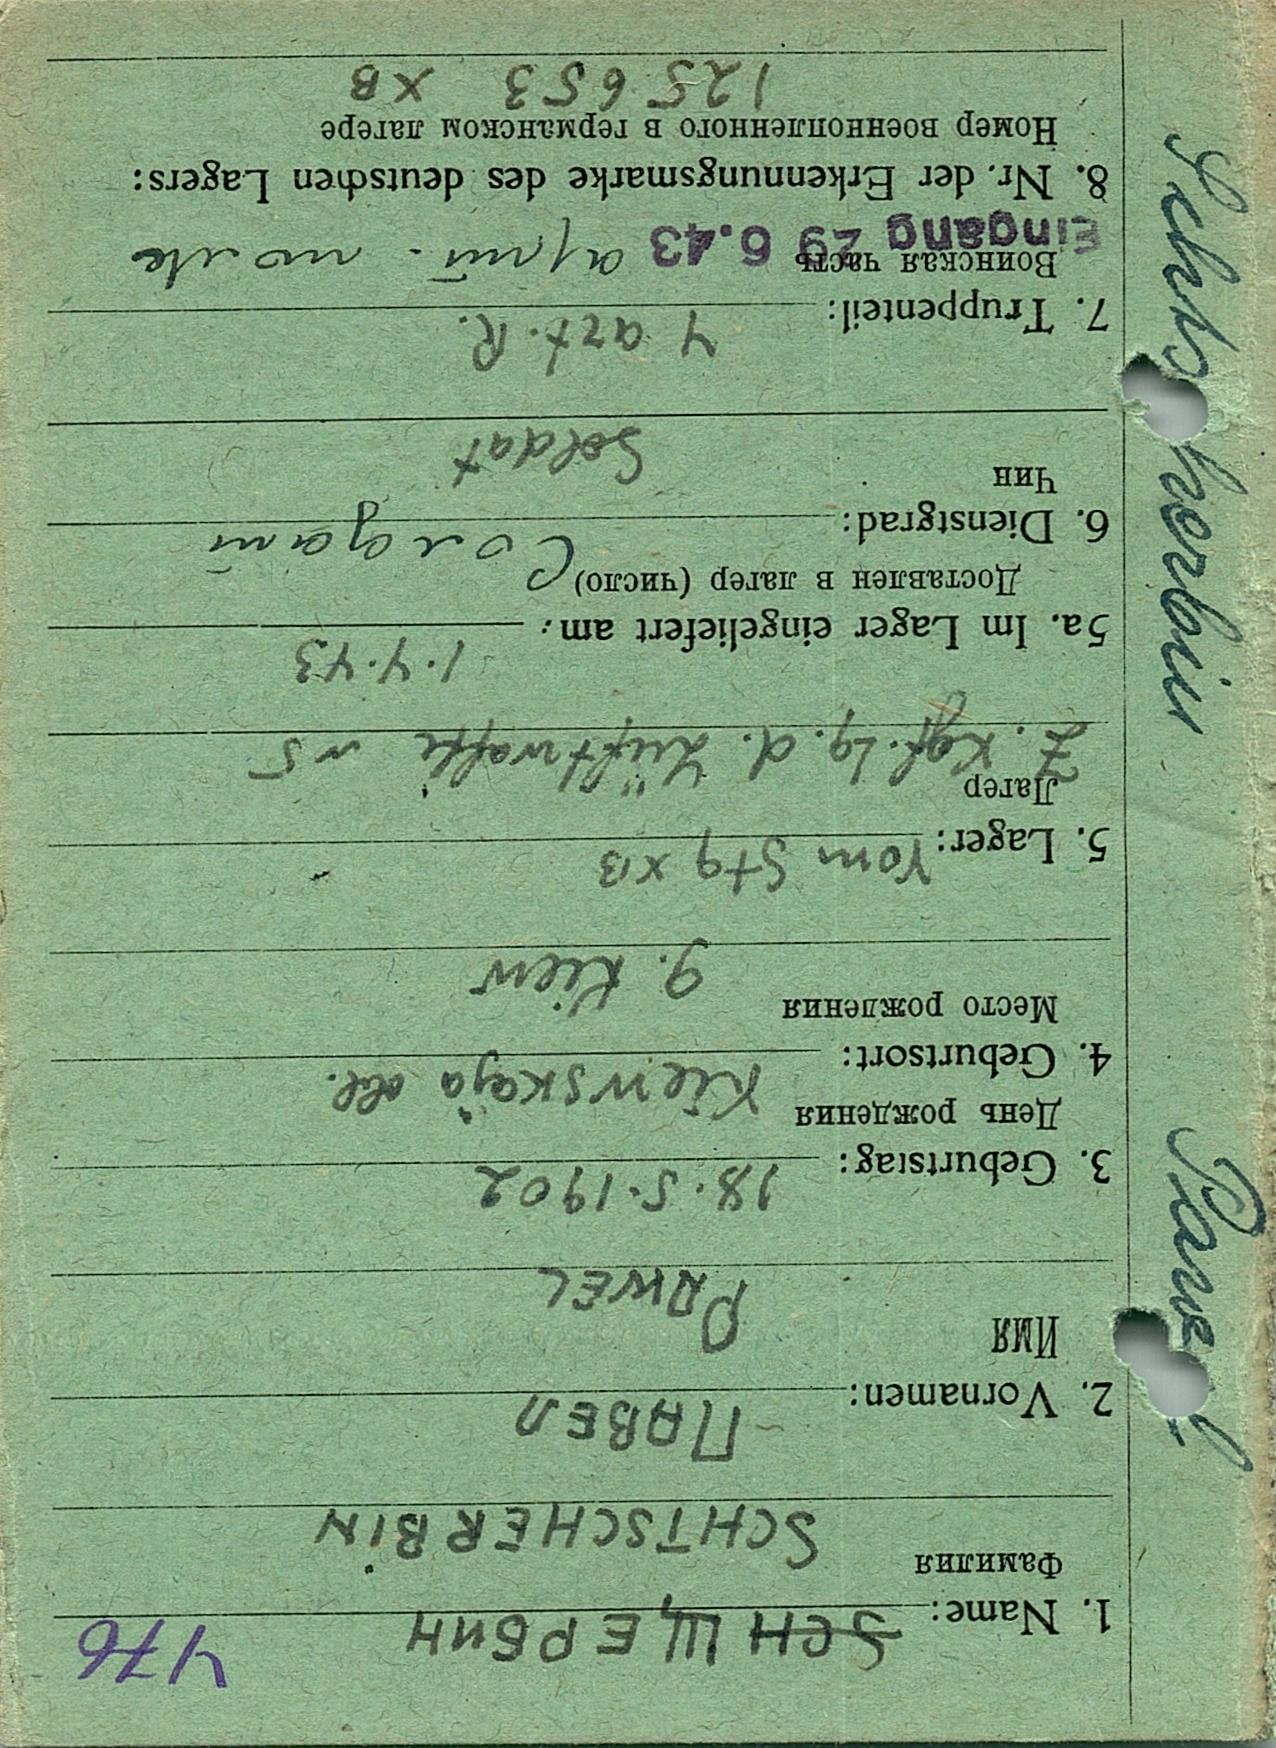 476
1. Name: SCH ЩЕРБИН
Фамилия
SCHTSCHERBIN
2. Vornamen: ПАВЕЛ
Имя
PAWEL
3. Geburtstag: 18.5.1902
День рождения
4. Geburtsort: Kiewskaja obl.
Место рождения
g. Kiew
5. Lager: Vom Stg XB
Лагер
z. Kgf. Lg. d. Luftwaffe № 5
5a. Im Lager eingeliefert am: 1.4.43
Доставлен в лагер (число)
6. Dienstgrad: Солдат
Чин
Soldat
7. Truppenteil: 4 art. R.
Воинская часть
Eingang 29 6.43
8. Nr. der Erkennungsmarke des deutschen Lagers:
Номер военнопленного в германском лагере
125653 XB
Schtscherbin Pawel